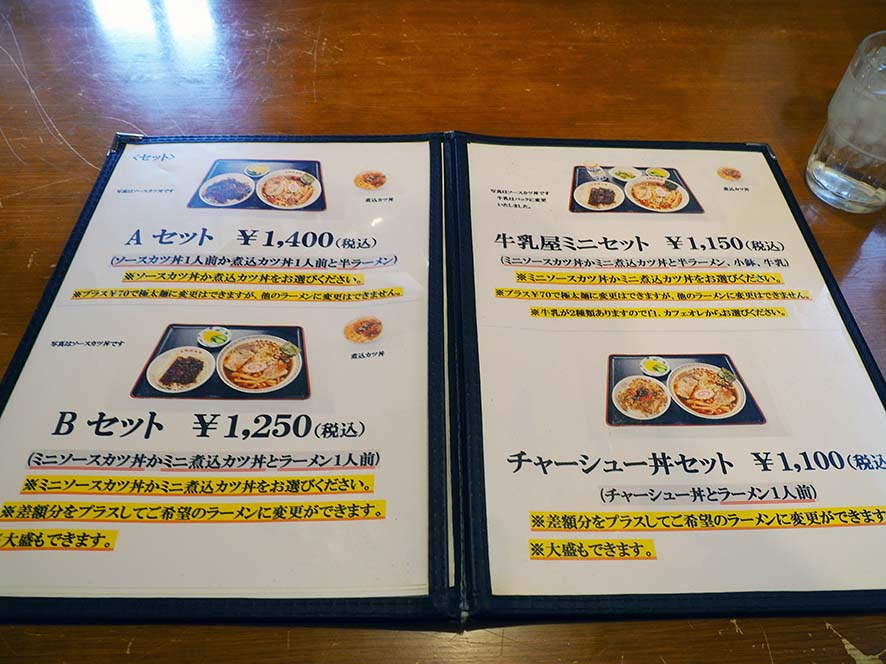 〈セット〉
写真はソースカツ丼です
煮込カツ丼
A セット ¥1,400(税込)
(ソースカツ丼1人前か煮込カツ丼1人前と半ラーメン)
※ソースカツ丼か煮込カツ丼をお選びください。
※プラス¥70で極太麺に変更はできますが、他のラーメンに変更はできません。
写真はソースカツ丼です
煮込カツ丼
B セット ¥1,250(税込)
(ミニソースカツ丼かミニ煮込カツ丼とラーメン1人前)
※ミニソースカツ丼かミニ煮込カツ丼をお選びください。
※差額分をプラスしてご希望のラーメンに変更ができます。
大盛もできます。
写真はソースカツ丼です
牛乳はパックに変更
いたしました。
煮込カツ丼
牛乳屋ミニセット ¥1,150(税込)
(ミニソースカツ丼かミニ煮込カツ丼と半ラーメン、小鉢、牛乳)
※ミニソースカツ丼かミニ煮込カツ丼をお選びください。
※プラス¥70で極太麺に変更はできますが、他のラーメンに変更はできません。
※牛乳が2種類ありますので白、カフェオレからお選びください。
チャーシュー丼セット ¥1,100(税込
(チャーシュー丼とラーメン1人前)
※差額分をプラスしてご希望のラーメンに変更ができます
※大盛もできます。